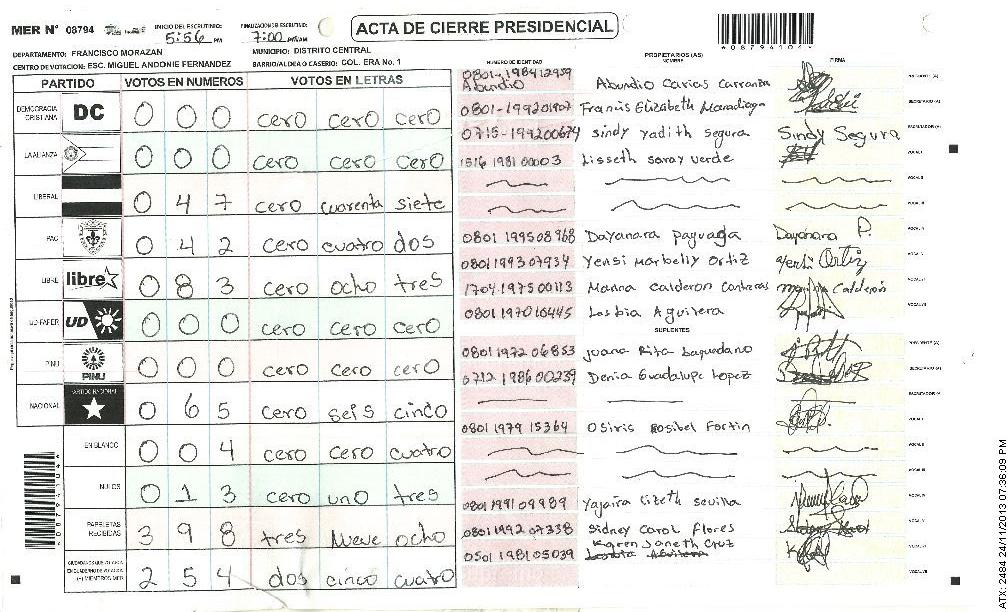 MER Nº 08794
INICIO DEL ESCRUTINIO: 5:56 PM
FINALIZACION DEL ESCRUTINIO: 7:00
ACTA DE CIERRE PRESIDENCIAL
DEPARTAMENTO: FRANCISCO MORAZAN
MUNICIPIO: DISTRITO CENTRAL
CENTRO DE VOTACION: ESC. MIGUEL ANDONIE FERNANDEZ
BARRIO/ALDEA O CASERIO: COL. ERA No. 1
PARTIDO VOTOS EN NUMEROS VOTOS EN LETRAS
DEMOCRACIA CRISTIANA DC 0 0 0 cero cero cero
LA ALIANZA 0 0 0 cero cero cero
LIBERAL 0 4 7 cero cuarenta siete
PAC 0 4 2 cero cuatro dos
LIBRE libre 0 8 3 cero ocho tres
UD-FAPER UD 0 0 0 cero cero cero
PINU PINU 0 0 0 cero cero cero
NACIONAL PARTIDO NACIONAL 0 6 5 cero seis cinco
EN BLANCO 0 0 4 cero cero cuatro
NULOS 0 1 3 cero uno tres
PAPELETAS RECIBIDAS 3 9 8 tres nueve ocho
2 5 4 dos cinco cuatro
NUMERO DE IDENTIDAD PROPIETARIOS (AS) NOMBRE FIRMA
Abundio Abundio Carias Carranza
Francis Elizabeth Maradiaga
0715-199200674 Sindy yadith segura Sindy Segura
1516 1981 00003 Lisseth saray verde
0801 1995 08968 Dayanara paguaga Dayanara P.
0801 1993 07934 Yensi Marbelly Ortiz Yensi Ortiz
1704 1975 00113 Marina Calderon Contreras Marina Calderón
0801 1970 16445 Lesbia Aguilera
SUPLENTES
0801 1972 06853 Juana Rita Baquedano
0712 1986 00239 Denia Guadalupe Lopez
0801 1979 15364 Osiris Rosibel Fortin
0801 1991 09989 Yajaira Lizeth sevilla
0801 1992 07338 Sidney Carol Flores
0501 1981 05039 Karen Janeth Cruz
ATX: 2484 24/11/2013 07:36:09 PM